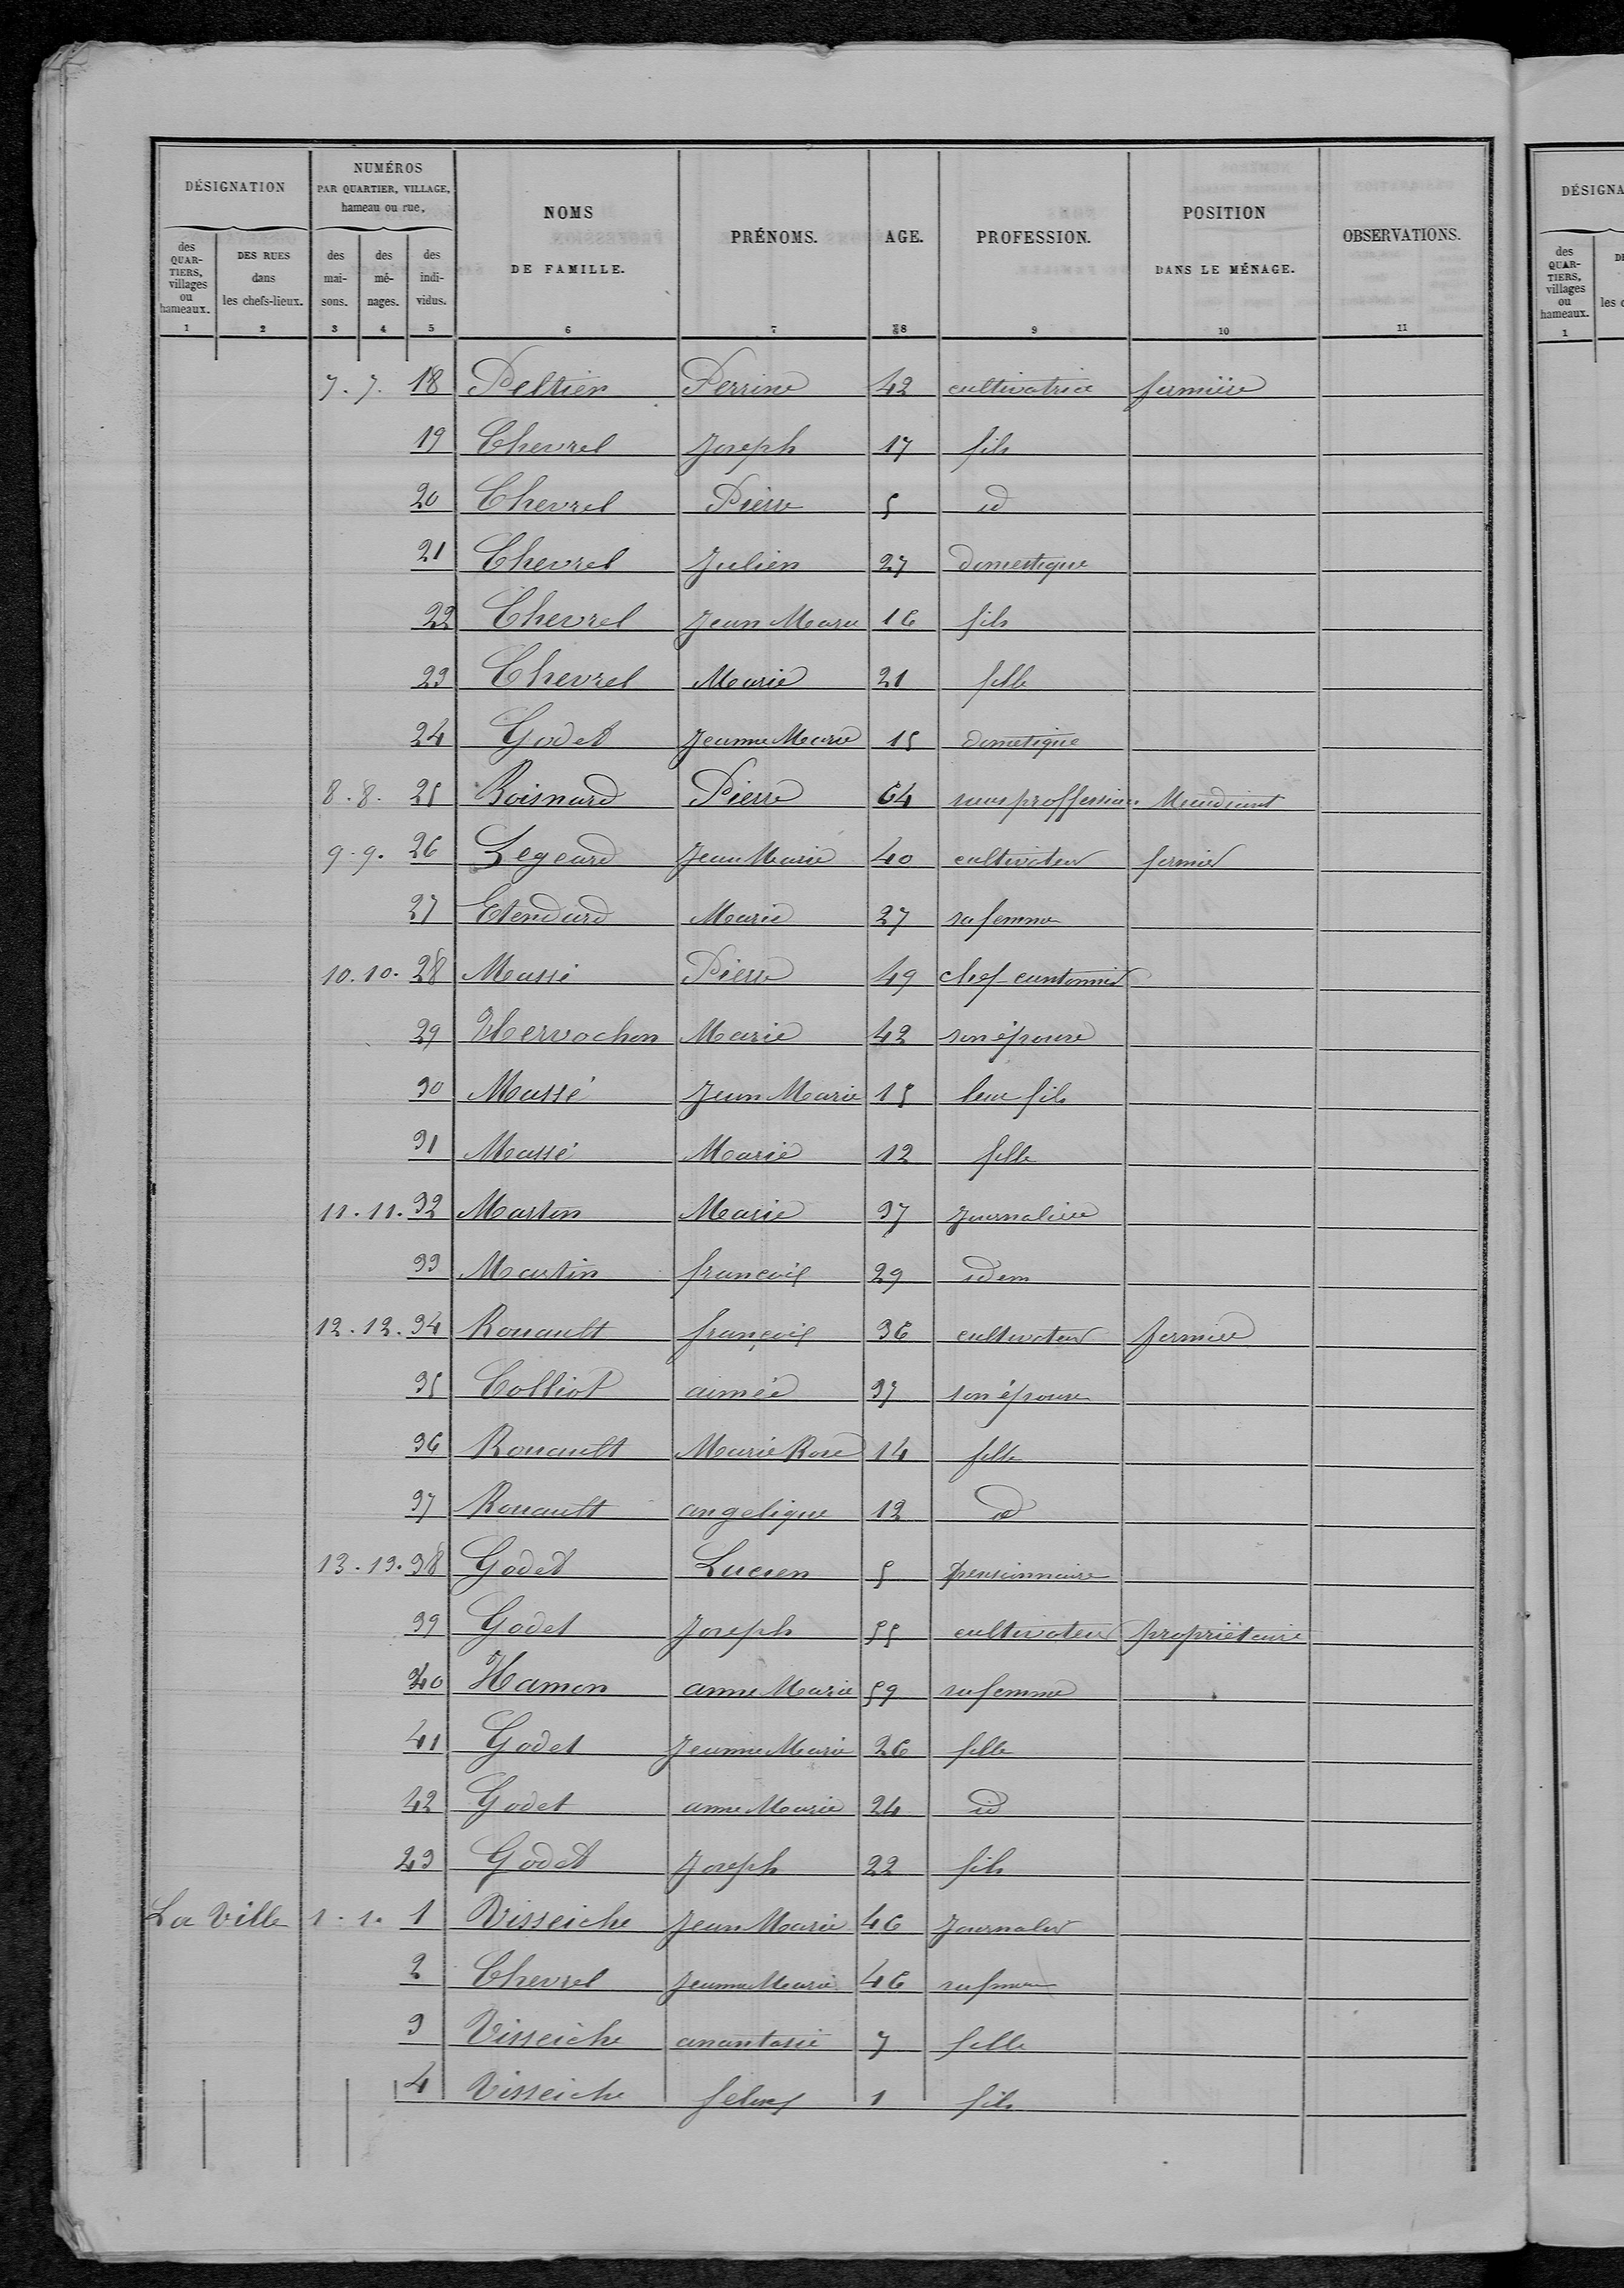 DÉSIGNATION NUMÉROS PAR QUARTIER, VILLAGE, hameau ou rue, NOMS DE FAMILLE. PRÉNOMS. AGE. PROFESSION. POSITION DANS LE MÉNAGE. OBSERVATIONS.
des QUARTIERS, villages ou hameaux. DES RUES dans les chefs-lieux. des maisons. des ménages. des individus.
1 2 3 4 5 6 7 8 9 10 11
7. 7. 18 Peltier Perrine 42 cultivatrice fermière
19 Chevrel Joseph 17 fils
20 Chevrel Pierre 5 id
21 Chevrel Julien 27 domestique
22 Chevrel Jean Marie 16 fils
23 Chevrel Marie 21 fille
24 Godet Jeanne Marie 15 dometique
8. 8. 25 Roisnard Pierre 64 sans proffession Mendiant
9. 9. 26 Legeard Jean Marie 40 cultivateur fermier
27 Etendard Marie 27 sa femme
10. 10. 28 Massé Pierre 49 chef-cantonnier
29 Hervochon Marie 42 son épouse
30 Massé Jean Marie 15 leur fils
31 Massé Marie 12 fille
11. 11. 32 Martin Marie 37 Journalière
33 Martin françois 29 idem
12. 12. 34 Rouault françois 36 cultivateur fermier
35 Colliot aimée 37 son épouse
36 Rouault Marie Rose 14 fille
37 Rouault angelique 12 id
13. 13. 38 Godet Lucien 5 pensionnaire
39 Godet Joseph 55 cultivateur propriétaire
40 Hamon anne Marie 59 sa femme
41 Godet Jeanne Marie 26 fille
42 Godet anne Marie 24 id
43 Godet Joseph 22 fils
La Ville 1. 1. 1 Visseiche Jean Marie 46 Journalier
2 Chevrel Jeanne Marie 46 sa femme
3 Visseiche anantasie 7 fille
4 Visseiche 1 fils
DÉSIGNA
des QUARTIERS, villages ou hameaux.
1